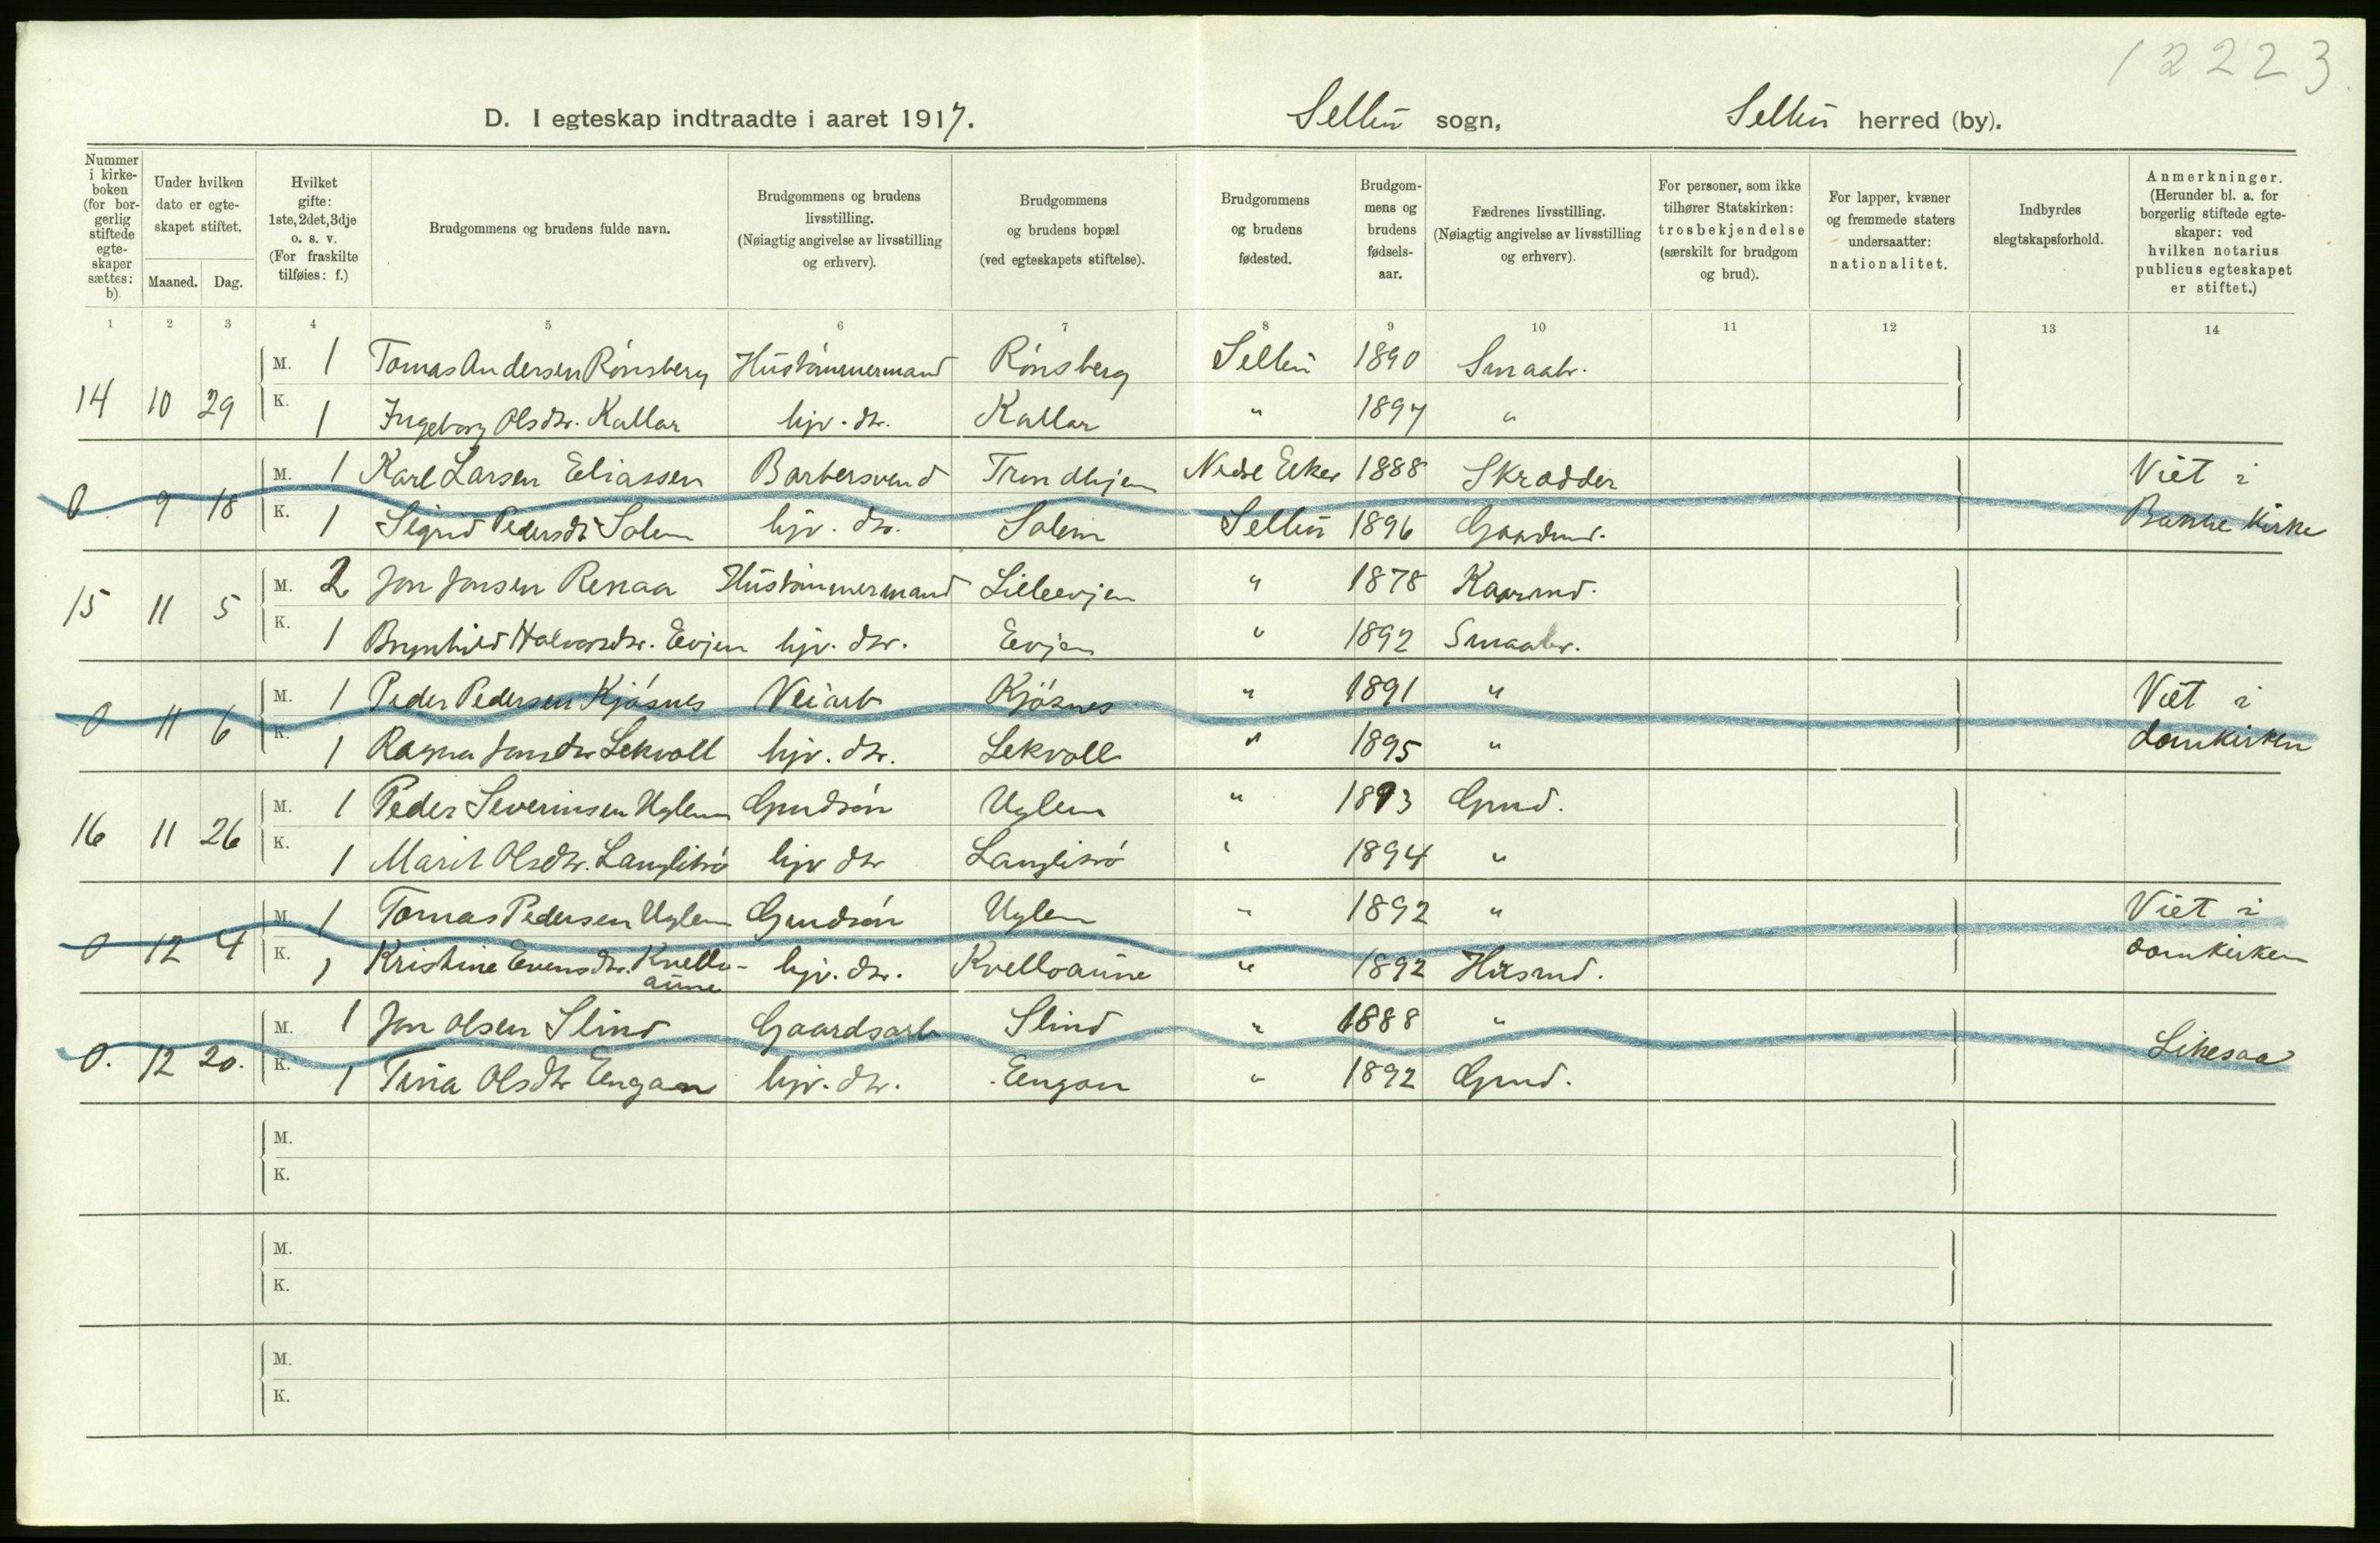 12223
D. I egteskap indtraadte i aaret 1917. Selbu sogn, Selbu herred (by).
Nummer i kirke-boken (for bor-gerlig stiftede egte-skaper sættes: b). Under hvilken dato er egte-skapet stiftet. Maaned. Dag. Hvilket gifte: 1ste, 2det, 3dje o. s. v. (For fraskilte tilføies: f.) Brudgommens og brudens fulde navn. Brudgommens og brudens livsstilling. (Nøiagtig angivelse av livsstilling og erhverv). Brudgommens og brudens bopæl (ved egteskapets stiftelse). Brudgommens og brudens fødested. Brudgom-mens og brudens fødsels-aar. Fædrenes livsstilling. (Nøiagtig angivelse av livsstilling og erhverv). For personer, som ikke tilhører Statskirken: trosbekjendelse (særskilt for brudgom og brud). For lapper, kvæner og fremmede staters undersaatter: nationalitet. Indbyrdes slegtskapsforhold. Anmerkninger. (Herunder bl. a. for borgerlig stiftede egte-skaper: ved hvilken notarius publicus egteskapet er stiftet.)
1 2 3 4 5 6 7 8 9 10 11 12 13 14
14 10 29 M. 1 Tomas Andersen Rönsberg Hustömmermand Rönsberg Selbu 1890 Smaabr.
K. 1 Ingeborg Olsdtr. Kallar hjv. dtr. Kallar " 1897 "
0 9 18 M. 1 Karl Larsen Eliassen Barbersvend Trondhjem Nedre Eker 1888 Skrædder Viet i
K. 1 Sigrid Pedersdtr Solem hjv. dtr. Solem Selbu 1896 Gaardmd. Bakke kirke
15 11 5 M. 2 Jon Jonsen Renaa Hustömmermand Lilleevjen " 1878 Kaarmd.
K. 1 Brynhild Halvorsdtr. Evjen hjv. dtr. Evjen " 1892 Smaabr.
0 11 6 M. 1 Peder Pedersen Kjösnes Veiarb Kjösnes " 1891 " Viet i
K. 1 Ragna Jonsdtr Lekvoll hjv. dtr. Lekvoll " 1895 " domkirken
16 11 26 M. 1 Peder Severinsen Uglem Gmdsön Uglem " 1893 Gmd.
K. 1 Marit Olsdtr. Langlitrö hjv dtr Langlitrö " 1894 "
0 12 4 M. 1 Tomas Pedersen Uglem Gmdsön Uglem " 1892 " Viet i
K. 1 Kristine Evensdtr. Kvello-aune hjv. dtr. Kvelloaune " 1892 Husmd. domkirken
0. 12 20. M. 1 Jon Olsen Slind Gaardsarb Slind " 1888 " Likesaa
K. 1 Tina Olsdtr Engan hjv. dtr. Engan " 1892 Gmd.
M.
K.
M.
K.
M.
K.